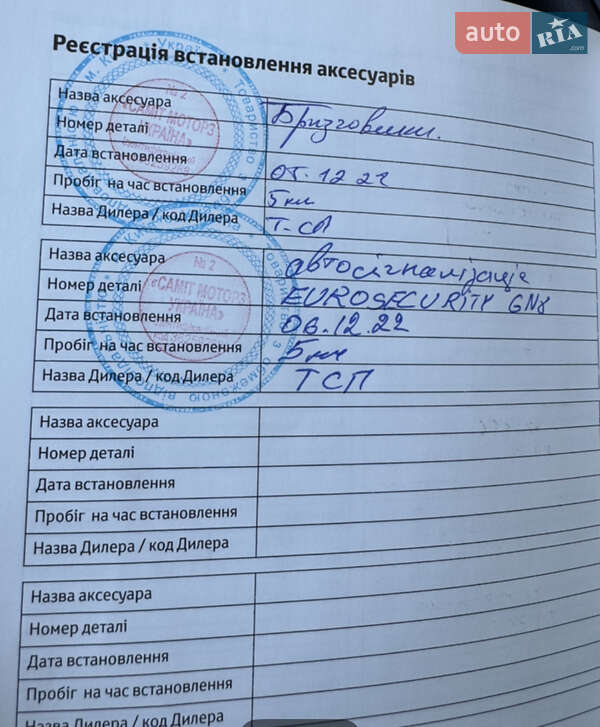 auto RIA .com
Реєстрація встановлення аксесуарів
Назва аксесуара Бризговики.
Номер деталі
Дата встановлення 05.12.22
Пробіг на час встановлення 5 км
Назва Дилера / код Дилера Т-СП
Назва аксесуара автосігналізація
Номер деталі EUROSECURITY GN8
Дата встановлення 06.12.22
Пробіг на час встановлення 5 км
Назва Дилера / код Дилера ТСП
№ 2
«САМІТ МОТОРЗ
УКРАЇНА»
№ 2
«САМІТ МОТОРЗ
УКРАЇНА»
Назва аксесуара
Номер деталі
Дата встановлення
Пробіг на час встановлення
Назва Дилера / код Дилера
Назва аксесуара
Номер деталі
Дата встановлення
Пробіг на час встановлення
Назва Дилера / код Дилера